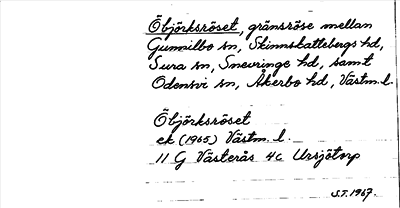 Öbjörksröset, gränsröse mellan
Gunnilbo sn, Skinnskattebergs hd,
Sura sn, Snevringe hd, samt
Odensvi sn, Åkerbo hd, Västm.l.
Öbjörksröset
ek (1965) Västm. l.
11 G Västerås 4c Ursjötorp
S.T. 1967.